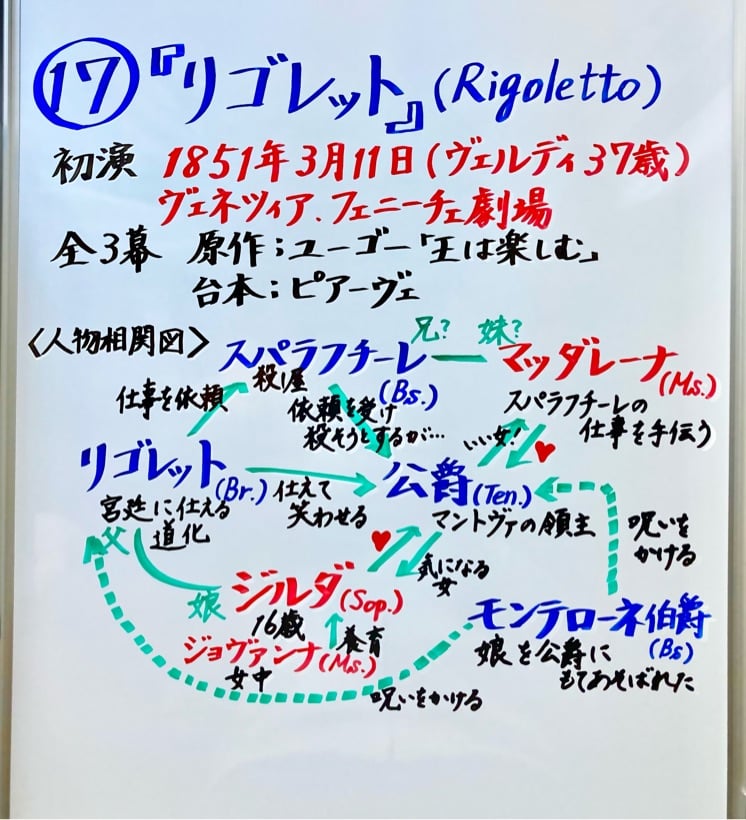 ⑰『リゴレット』(Rigoletto)
初演 1851年3月11日(ヴェルディ37歳)
ヴェネツィア、フェニーチェ劇場
全3幕 原作;ユーゴー「王は楽しむ」
台本;ピアーヴェ
〈人物相関図〉
スパラフチーレ(Bs.)
殺し屋
兄? 妹?
マッダレーナ(Ms.)
スパラフチーレの
仕事を手伝う
仕事を依頼
依頼を受け
殺そうとするが…
いい女!
リゴレット(Br.)
宮廷に仕える
道化
仕えて
笑わせる
公爵(Ten.)
マントヴァの領主
呪いを
かける
父
娘
ジルダ(Sop.)
16歳
気になる
女
養育
ジョヴァンナ(Ms.)
女中
モンテローネ伯爵
(Bs)
娘を公爵に
もてあそばれた
呪いをかける